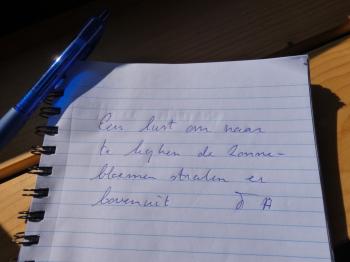 Een lust om naar
te kyken de Zonne-
bloemen stralen er
bovenuit